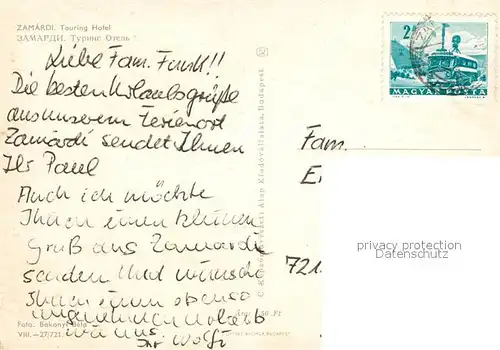 ZAMÁRDI. Touring Hotel
ЗАМАРДИ. Туринг Отель
Liebe Fam. Funk!!
Die besten Urlaubsgrüße
aus unserem Ferienort
Zamárdi sendet Ihnen
Ihr Paul
Auch ich möchte
Ihnen einen kleinen
Gruß aus Zamardi
senden und wünsche
Ihnen einen ebenso
angenehmen Urlaub
wie uns
Ihr Wolfi
Foto: Bakonyi Béla
VIII.—27/721
Képzőművészeti Alap Kiadóvállalata, Budapest
2
MAGYAR POSTA
Fam.
721
privacy protection